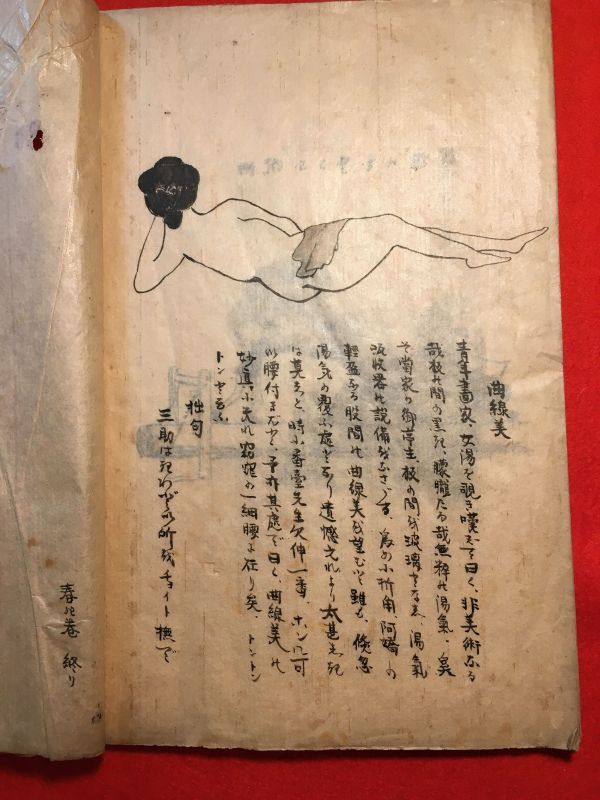 曲線美
青年畫家、女湯を覗き嘆じて曰く、非美術なる
哉板の間の黒き、朦朧たる哉無粋の湯氣、
そ當家の御亭主板の間を玻璃となし、湯氣
吸收器の設備なきや、為めに折角、阿嬌の
軽盈なる股間の曲線美を望むと雖も、倏忽
湯気の覆ふ處となり遺憾之れより太甚しき
は莫しと、時に番臺先生欠伸一番、ホンに可
い腰付きだと、予亦其處で曰く、曲線美の
妙眞に夫れ窈窕の一細腰に在り矣、トントン
トンと云ふ
拙句
三助は云わず所をチョイト撫で
春の巻 終り